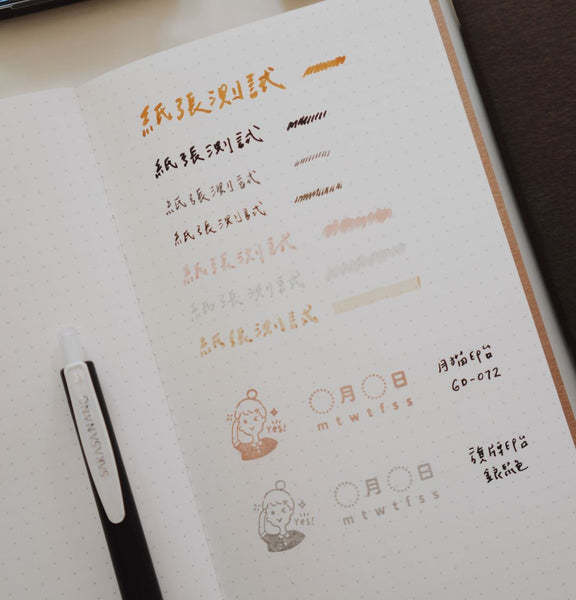 紙張測試
紙張測試
紙張測試
紙張測試
紙張測試
紙張測試
紙張測試
yes!
月 日
m t w t f s s
月貓印台
GD-072
yes!
月 日
m t w t f s s
旗牌印台
銀鼠色
SARASA NANO